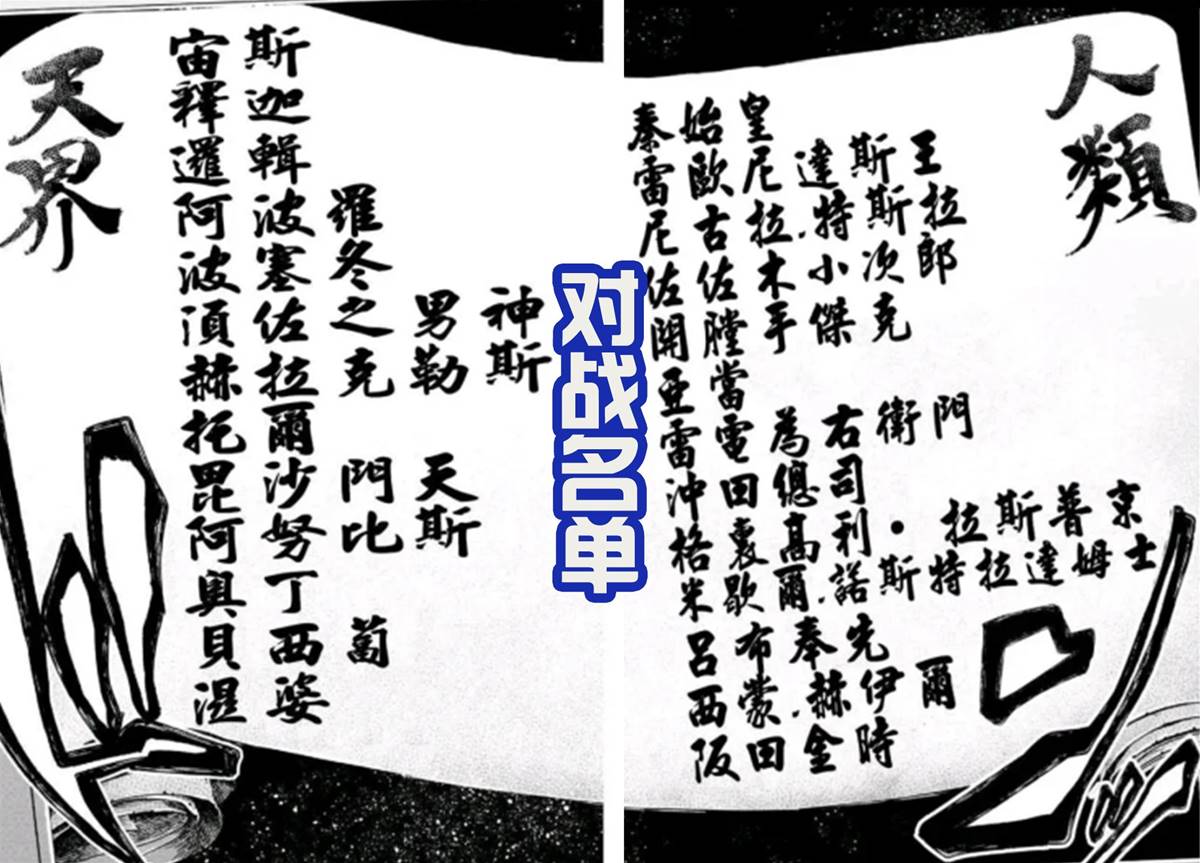 天界
宙斯
釋迦
邏輯
阿波羅
波塞冬
須佐之男神
赫拉克勒斯
托爾
毘沙門天
阿努比斯
奧丁
貝西蔔
濕婆
对战名单
人類
秦始皇
雷歐尼達斯王
尼古拉.特斯拉
佐佐木小次郎
開膛手傑克
亞當
雷電為右衛門
沖田總司
格裏高利・拉斯普京
米歇爾.諾斯特拉達姆士
呂布奉先
西蒙.赫伊爾
阪田金時